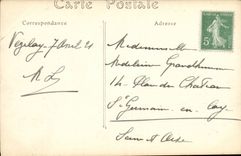 Carte Postale
Correspondance
Adresse
Vezelay 7 Avril 21
M L
Mademoiselle
Madeleine Grandhomme
14 Place du Chateau
St Germain en Laye
Seine et Oise
5